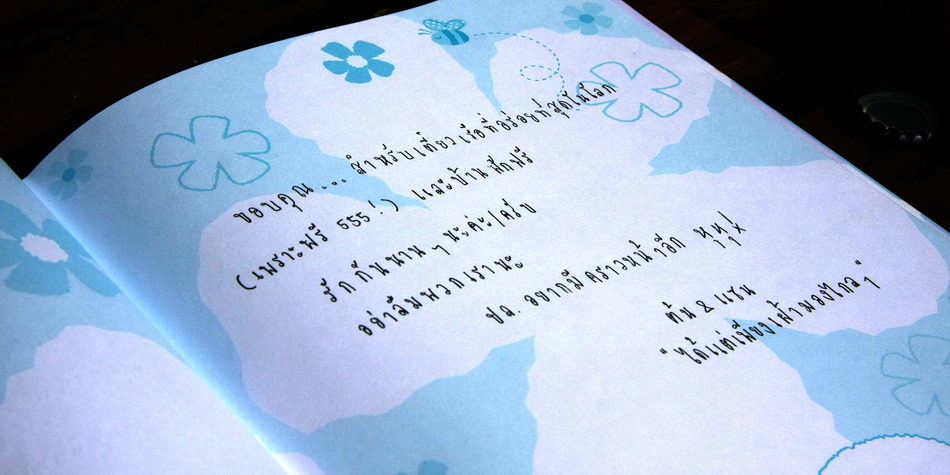 ขอบคุณ ... สำหรับเที่ยวเรือที่อร่อยที่สุดในโลก
(เพราะฟรี 555!) และบ้านพักฟรี
รักกันนาน ๆ นะคะ/ครับ
อย่าลืมพวกเรานะ
ปล. อยากมีคราวหน้าอีก หุหุ
ต้น & แซน
"ได้แต่เพียงเฝ้ามองไกลๆ"